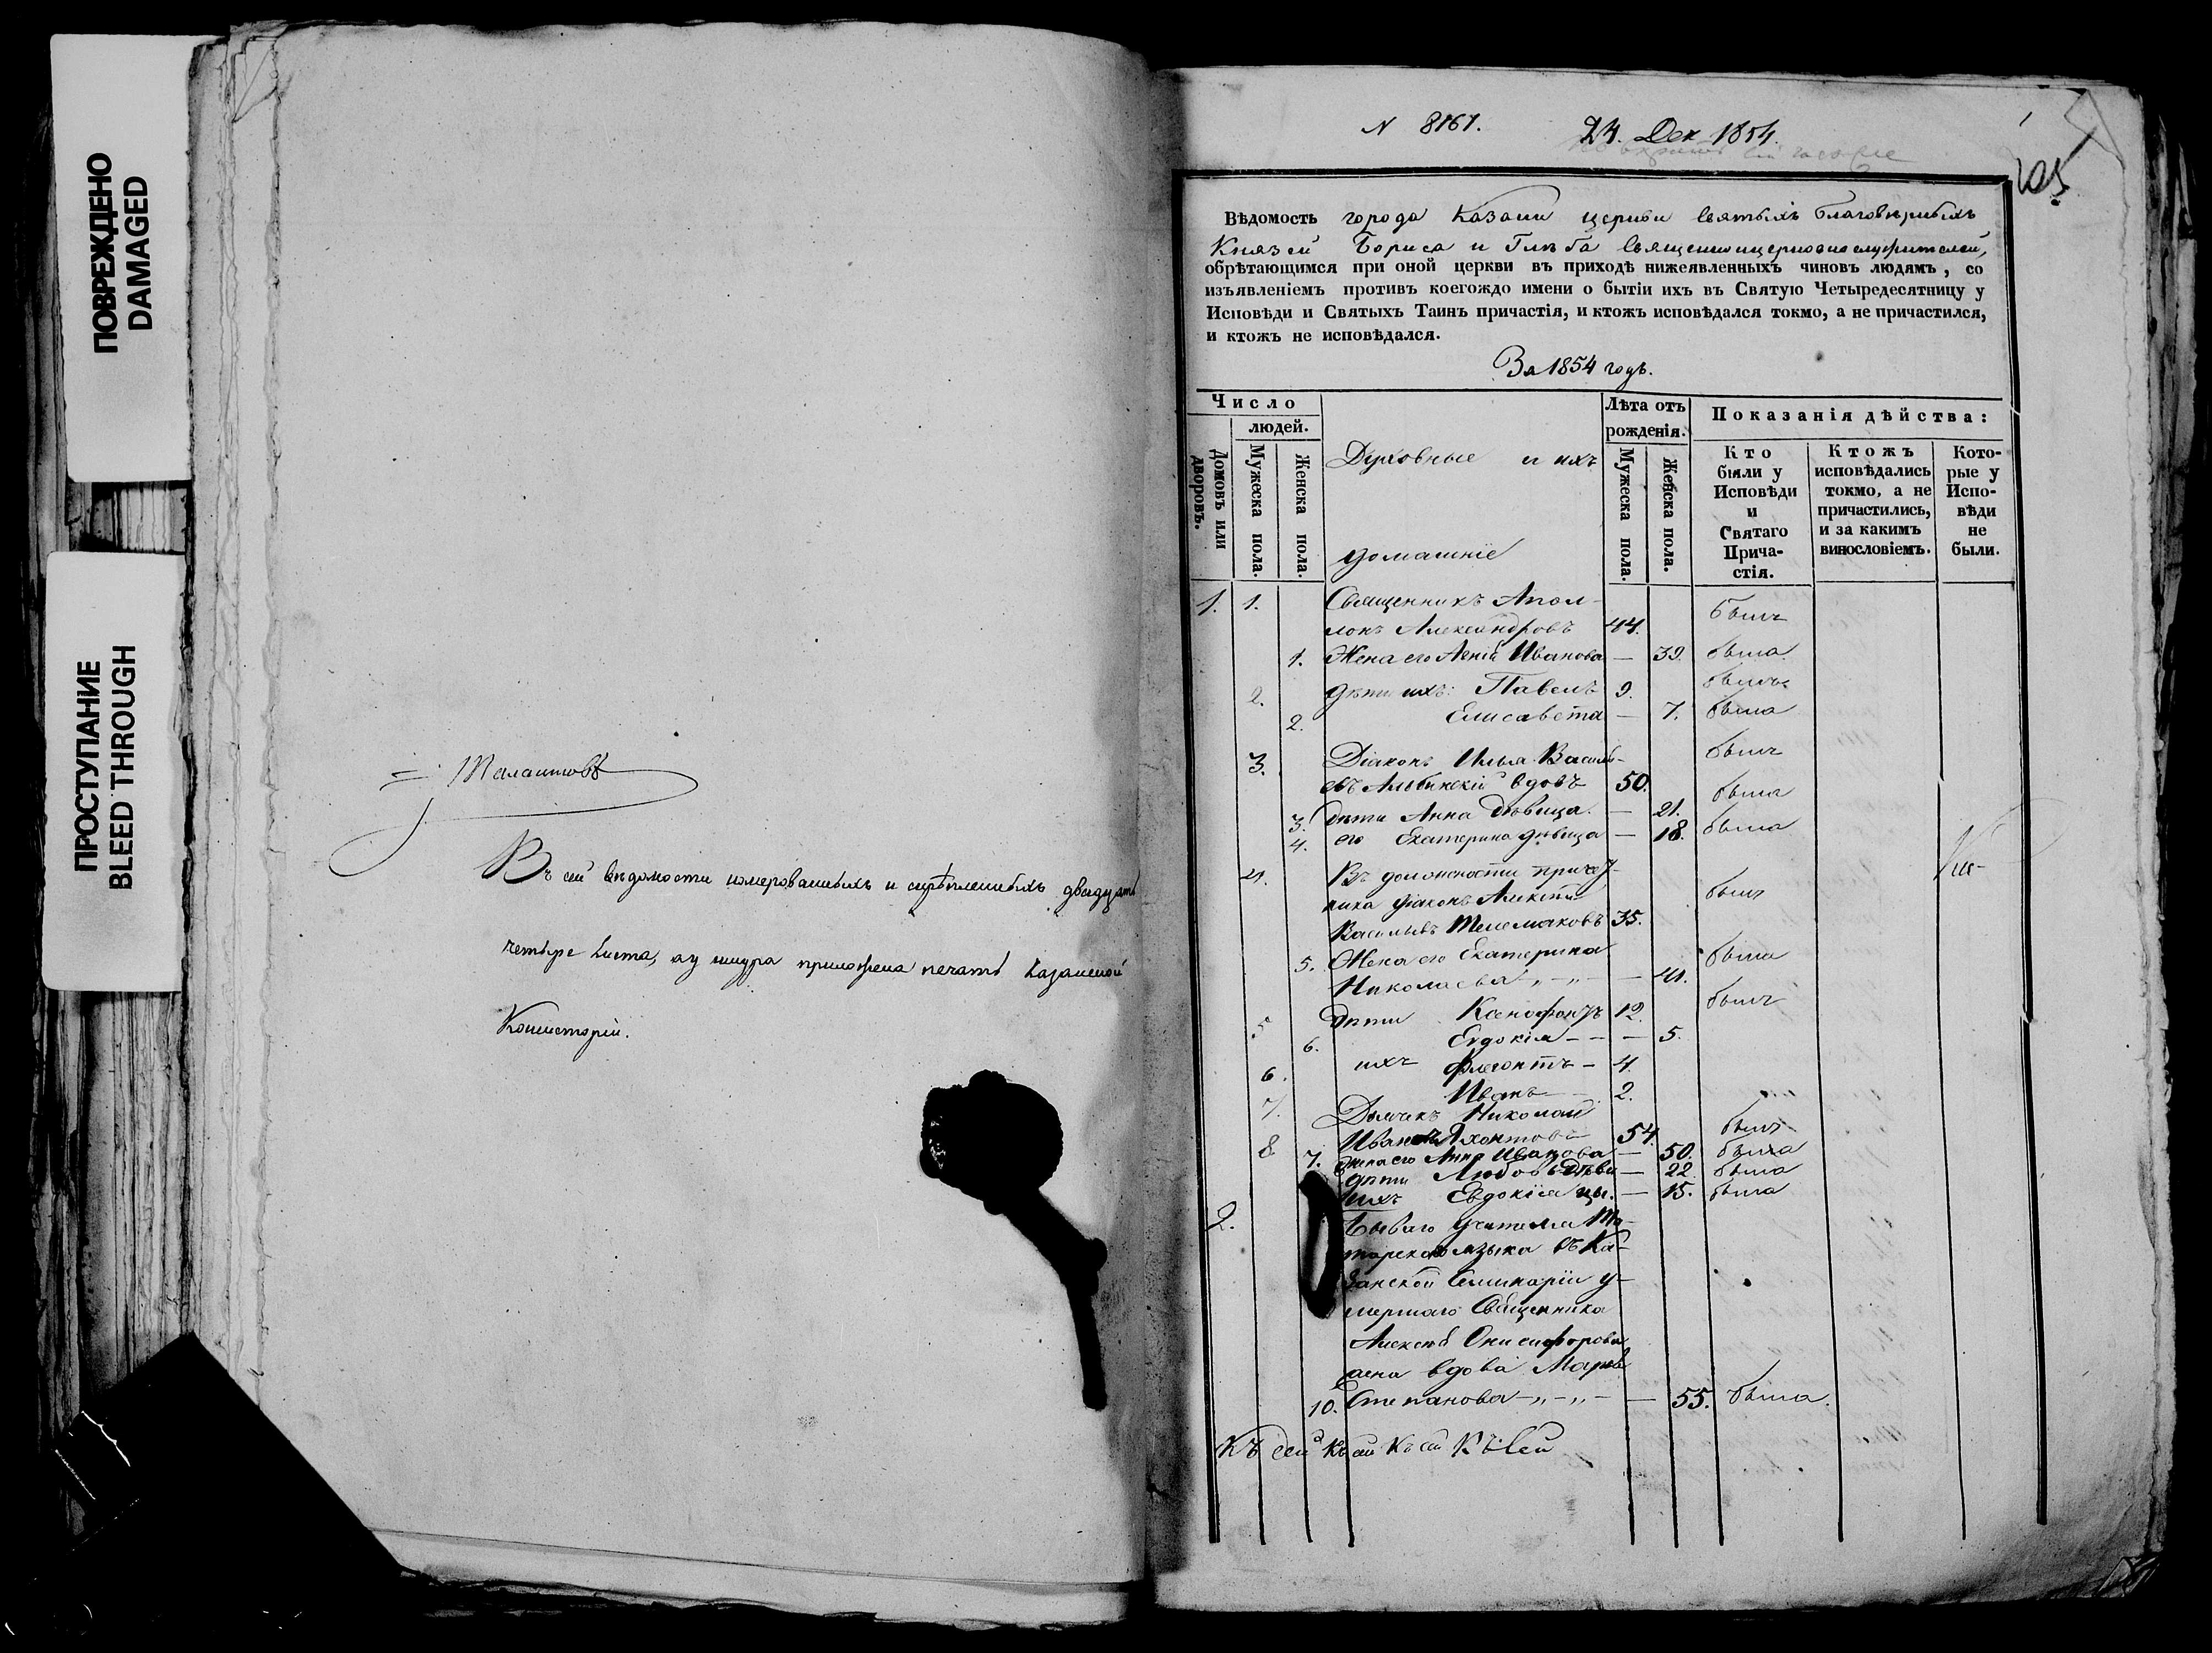 ПОВРЕЖДЕНО
DAMAGED
ПРОСТУПАНИЕ
BLEED THROUGH
Въ сей вѣдомости номерованныхъ и скрѣпленныхъ двадцать
четыре листа, а у шнура приложена печать Казанской
Консисторіи.
N 8161. 24. Дек 1854.
Вѣдомость города Казани церкви Святыхъ Благовѣрныхъ
Князей Бориса и Глѣба Священноцерковнослужителей,
обрѣтающимся при оной церкви въ приходѣ нижеявленныхъ чиновъ людямъ, со
изъявленіемъ противъ коегождо имени о бытіи ихъ въ Святую Четыредесятницу у
Исповѣди и Святыхъ Таинъ причастія, и ктожъ исповѣдался токмо, а не причастился,
и ктожъ не исповѣдался.
За 1854 годъ.
Число
людей.
Домовъ или дворовъ.
Мужеска пола.
Женска пола.
Духовные и ихъ
домашніе
Лѣта отъ
рожденія.
Мужеска пола.
Женска пола.
Показанія дѣйства:
Кто
были у
Исповѣди
и
Святаго
Прича-
стія.
Ктожъ
исповѣдались
токмо, а не
причастились,
и за какимъ
винословіемъ.
Кото-
рые у
Испо-
вѣди
не
были.
1. 1. Священникъ Апол-
лонъ Александровъ 44. былъ
1. Жена его Иванова — 39. была
2. Дѣти ихъ: Павелъ 9. былъ
2. Елисавета — 7. была
3. Діаконъ Илья Василь-
евъ Альбинскій вдовъ 50. былъ
3. Дѣти Анна дѣвица — 21. была
4. его Екатерина дѣвица — 18. была
4. Въ должности причет-
ника діаконъ Алексѣй
Васильевъ Телемаковъ 35. былъ
5. Жена его Екатерина
Николаева — 41. была
5 Дѣти Ксенофонтъ 12. былъ
6. Евдокія — — — 5.
6. ихъ Флегонтъ — 4.
7. Иванъ — 2.
Дьячекъ Николай
8 Ивановъ Яхонтовъ 54. былъ
7. Жена его Анна Иванова — 50. была
дѣти Любовь дѣви — 22. была
ихъ Евдокія цы. — 15. была
2. Бывшаго учителя Та-
тарскаго языка въ Ка-
занской Семинаріи у-
мершаго Священника
Алексѣя Онисифорова
жена вдова Марѳа
10. Степанова — „ — „ — — 55. была.
Къ сей Къ сей Къ сей Къ Сей